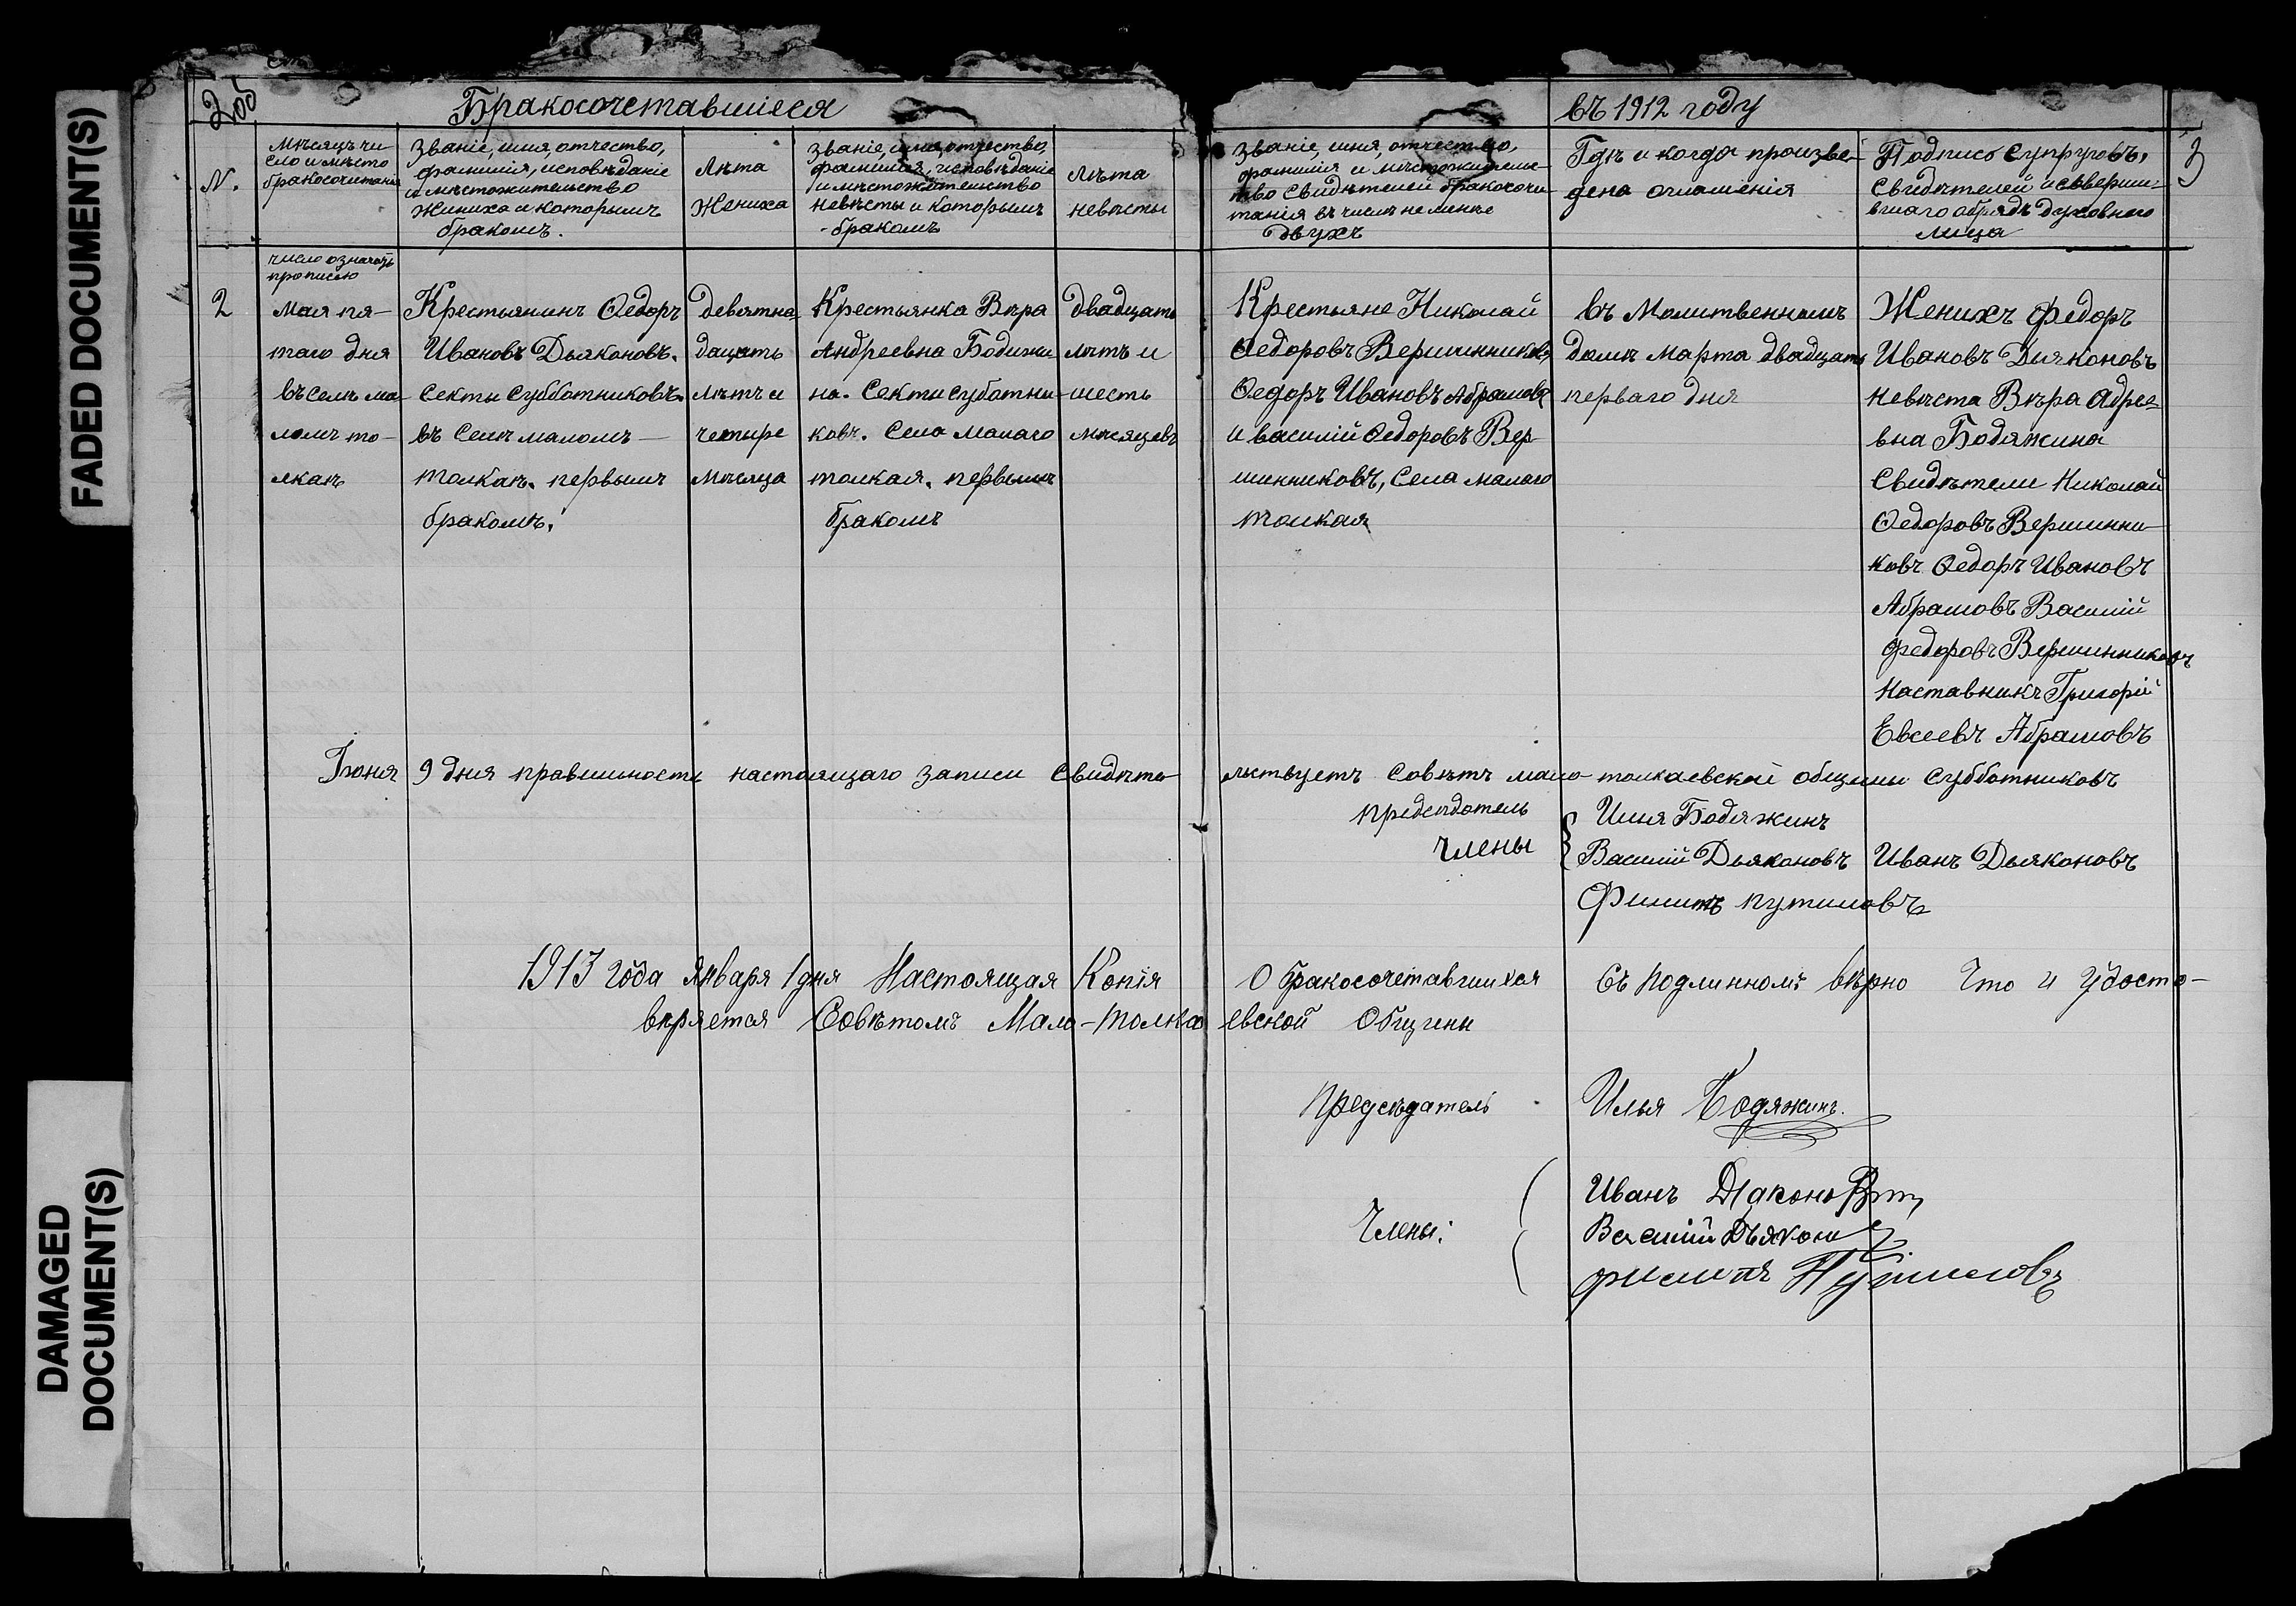 FADED DOCUMENT(S)
DAMAGED
DOCUMENT(S)
2об
Бракосочетавшіеся
въ 1912 году
3
N.
Мѣсяцъ чи
сло и мѣсто
бракосочитанія
Званіе, имя, отчество,
фамилія, исповѣданіе
и мѣстожительство
Жениха и которымъ
бракомъ.
Лѣта
Жениха
Званіе, имя, отчество,
фамилия, исповѣданіе
и мѣстожительство
невѣсты и которымъ
-бракомъ
лѣта
невѣсты
Званіе, имя, отчество,
фамилія и мѣстожитель-
ство свидѣтелей бракосочи-
танія въ числѣ не менѣе
двухъ
Гдѣ и когда произве-
дена оглашенія
Подпись супруговъ,
Свидѣтелей и соверши-
вшаго обрядъ духовнаго
лица
число означать
прописью
2
мая пя-
таго дня
въ селѣ ма-
ломъ то-
лкаѣ
Крестьянинъ Ѳедоръ
Ивановъ Дьяконовъ.
Секты субботниковъ.
въ Селѣ маломъ
толкаѣ. первымъ
бракомъ.
девятна-
дцать
лѣтъ и
четыре
мѣсяца
Крестьянка Вѣра
Андреевна Бодяжи
на. Секты суботни-
ковъ. Села Малаго
толкая. первымъ
бракомъ
двадцать
лѣтъ и
шесть
мѣсяцевъ
Крестьяне Николай
Ѳедоровъ Вершинниковъ
Ѳедоръ Ивановъ Абрамовъ
и василій Ѳедоровъ Вер-
шинниковъ, Села малаго
толкая
въ Молитвенномъ
домѣ марта двадцать
перваго дня
Женихъ Федоръ
Ивановъ Дияконовъ
невѣста Вѣра Адрее-
вна Бодяжина
Свидѣтели Николай
Ѳедоровъ Вершинни-
ковъ Ѳедоръ Ивановъ
Абрамовъ Василій
Федоровъ Вершинниковъ
Наставникъ Григорій
Евсеевъ Абрамовъ
Іюня 9 дня правильность настоящаго записи свидѣте- льствуетъ совѣтъ мало-толкаевской общины субботниковъ
предсѣдатель Илия Бодяжинъ
члены { Василій Дьяконовъ Иванъ Дьяконовъ
Филипъ путиловъ
1913 года Января 1 дня Настоящая Копія О бракосочетавшихся Съ подлинномъ вѣрно Что и Удосто-
вѣряется Совѣтомъ Мало-Толка евской Общины
Предсѣдатель Илья Бодяжинъ.
Члены: Иванъ
Василій Дьяконовъ
филипъ Путиловъ